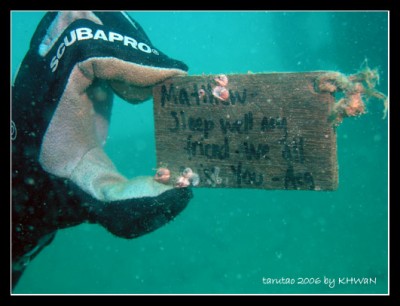 SCUBAPRO
Matthew-
Sleep well my
friend - We all
Miss You - Amy
tarutao 2006 by KHWaN